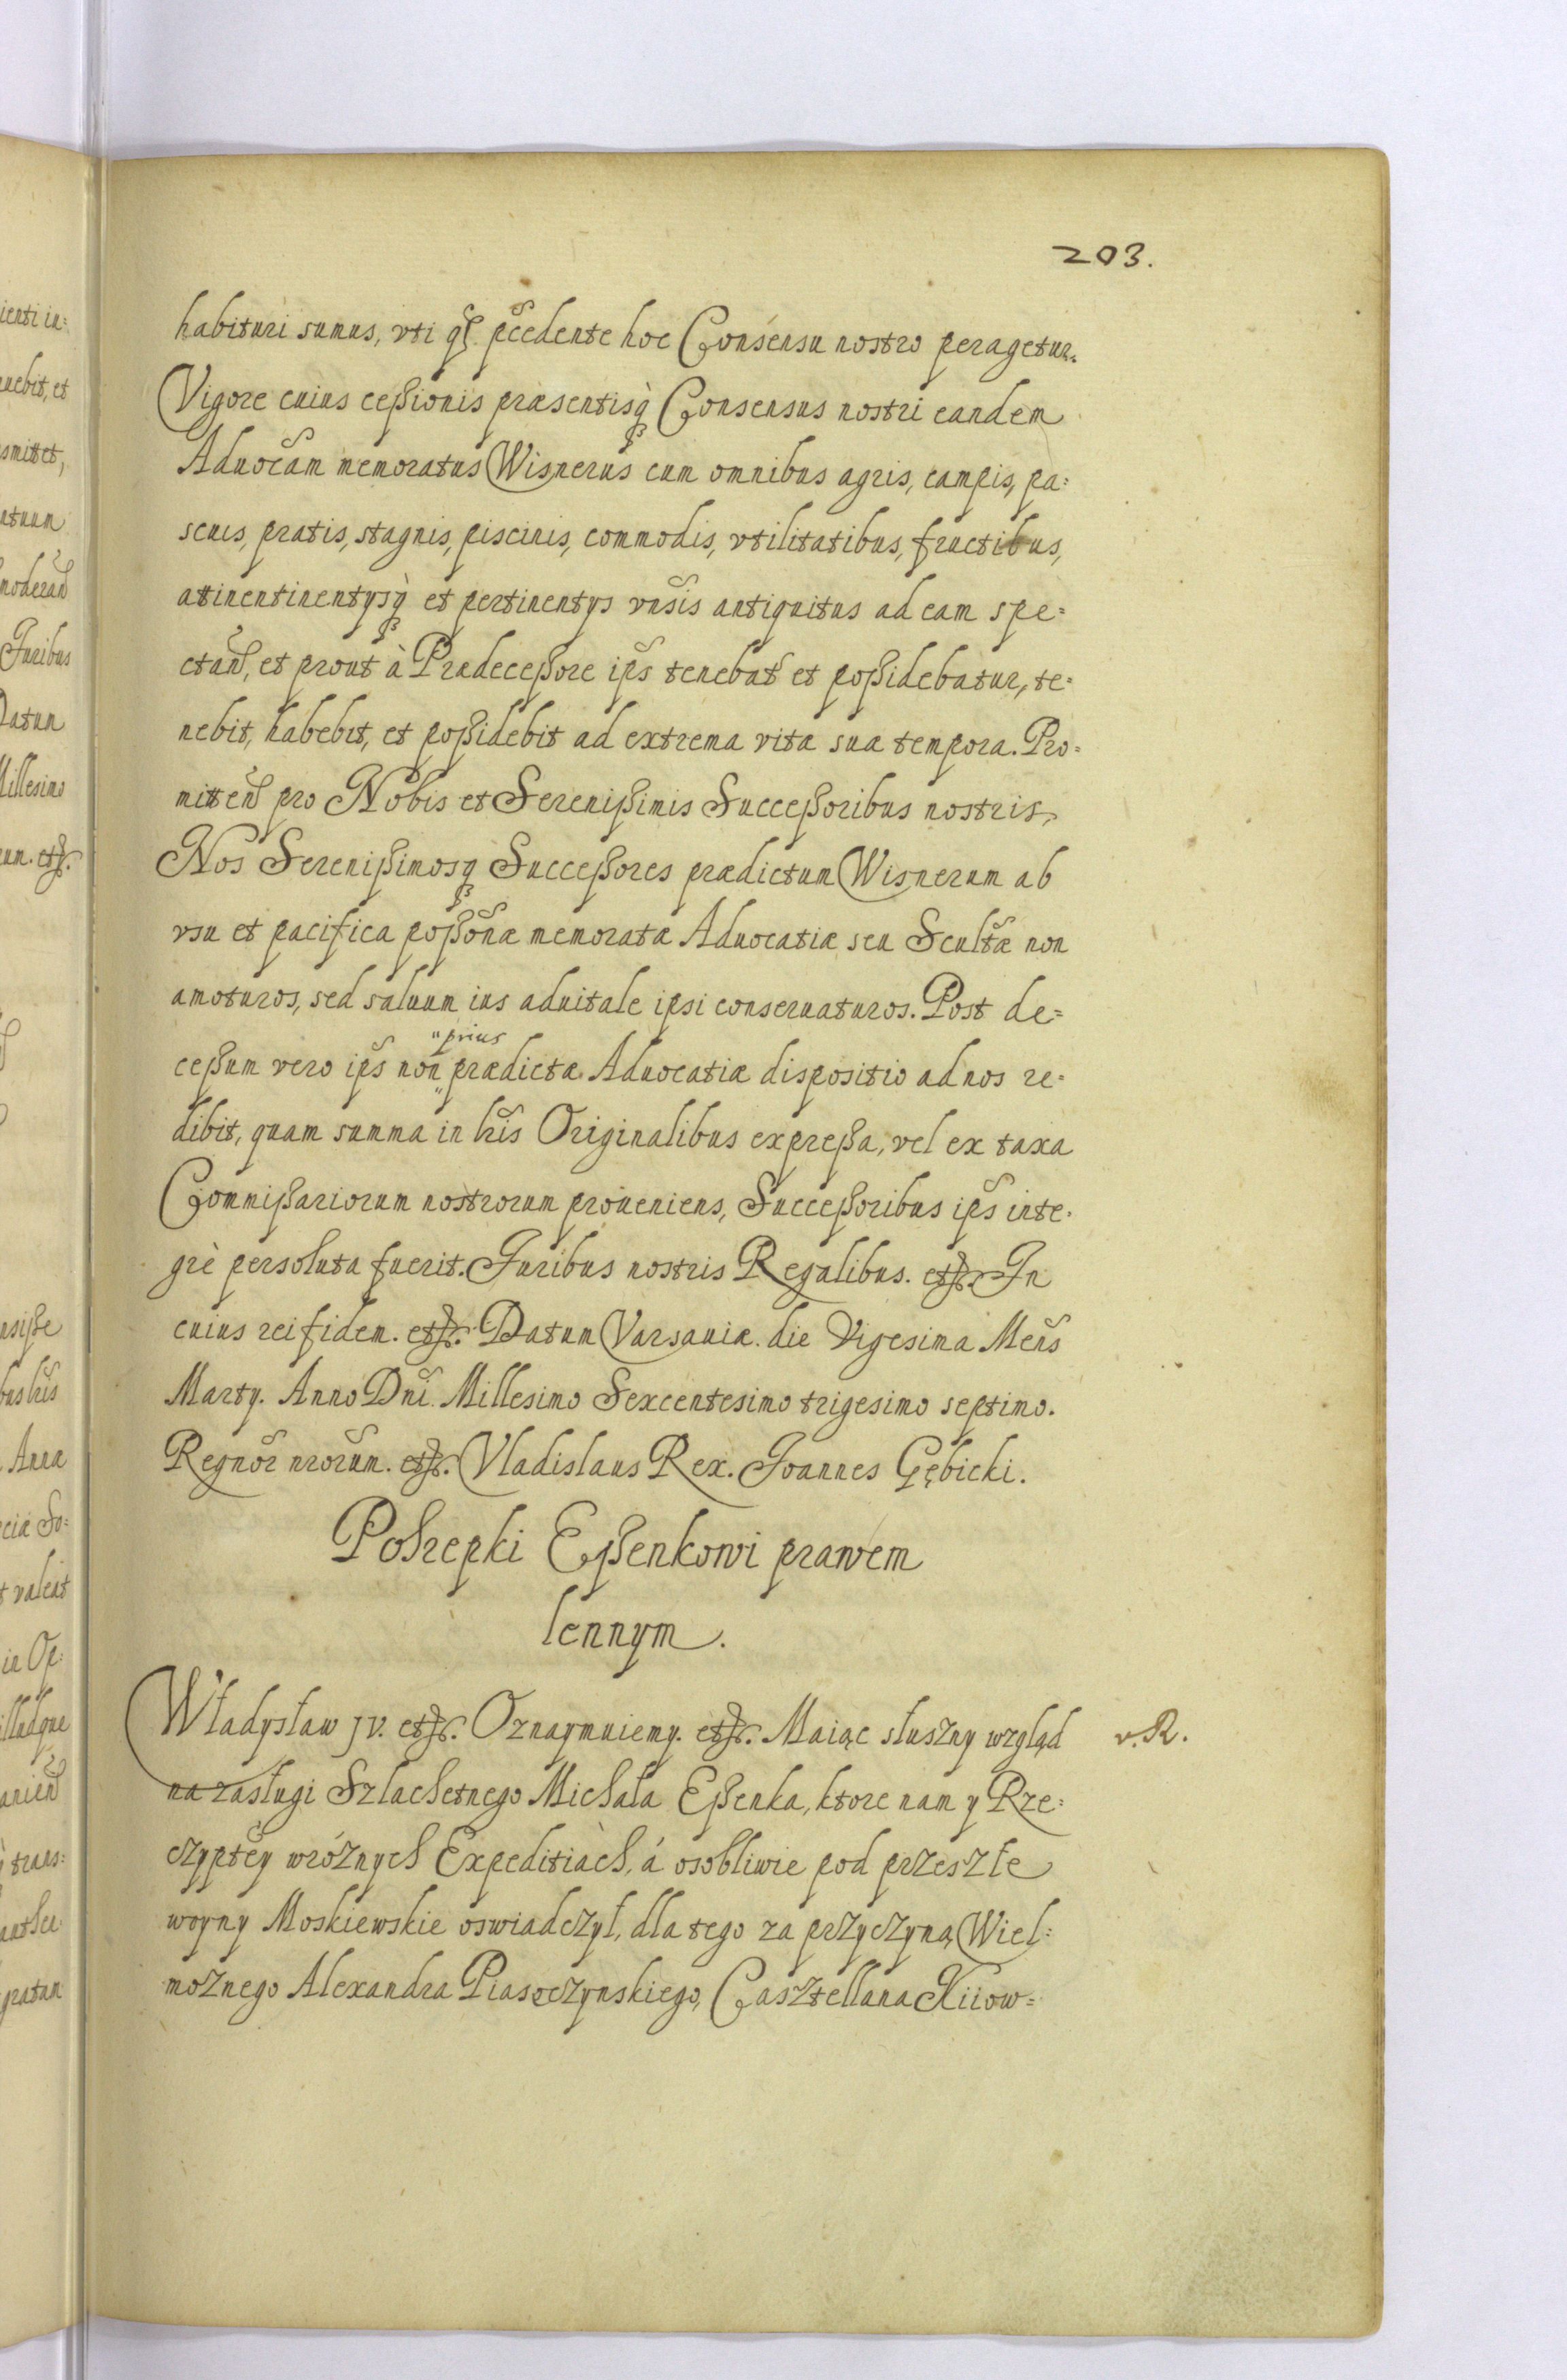 203.
habituri sumus, vti qς. pc̃edente hoc Consensu nostro peragetur.
Vigore cuius ceßionis præsentisq̀ Consensus nostri eandem
Aduoc̃am memoratus Wisnerus cum omnibus agris, campis, pa=
scuis, pratis, stagnis, piscinis, commodis, vtilitatibus, fructibus,
attinentinentysq̀ et pertinentys vñsis antiquitus ad eam spe=
ctañd, et prout à Prædeceßore ip̃s tenebat̃ et poßidebatur, te=
nebit, habebit, et poßidebit ad extrema vitæ suæ tempora. Pro=
mitteñd pro Nobis et Serenißimis Succeßoribus nostris,
Nos Serenißimosq Succeßores prædictum Wisnerum ab
vsu et pacifica poßõnæ memoratæ Aduocatiæ seu Scult̃æ non
amoturos, sed saluum ius aduitale ipsi conseruaturos. Post de=
"prius
ceßum vero ip̃s non prædictæ Aduocatiæ dispositio ad nos re=
dibit, quam summa in lr̃is Originalibus expreßa, vel ex taxa
Commißariorum nostrorum proueniens, Succeßoribus ip̃s inte=
grè persoluta fuerit. Iuribus nostris Regalibus. etc. In
cuius rei fidem. etc. Datum Varsauiæ. die Vigesima Meñs
Marty. Anno Dñi. Millesimo Sexcentesimo trigesimo septimo.
Regnor̃ nrõrum. etc. Vladislaus Rex. Joannes Gębicki.
Pohrepki Eßenkowi prawem
lennym.
Władysław jv. etc. Oznaymuiemy. etc. Maiąc słuszny wzgląd
v. R.
na zasługi Szlachetnego Michała Eßenka, ktore nam y Rze=
czyptẽy wróżnych Expeditiàch, á osobliwie pod przeszłe
woyny Moskiewskie oswiadczył, dla tego za przyczyną Wiel=
możnego Alexandra Piasoczynskiego, Casztellana Kiiow=